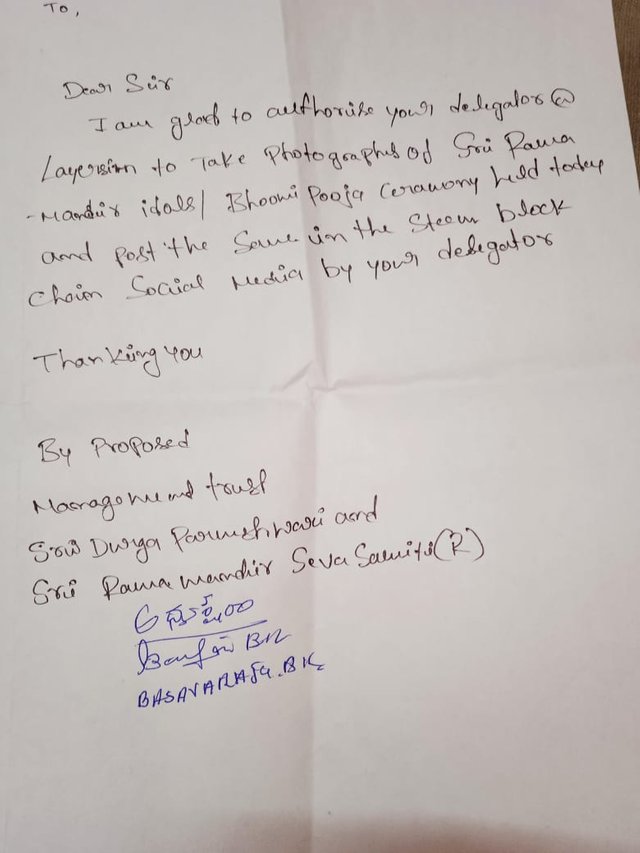 To,
Dear Sir
I am glad to authorise your delegator @
to Take Photographs of Sri Rama
Mandir idols/ Bhoomi Pooja Ceramony held today
and post the Same in the Steem block
Chain Social Media by your delegator
Thanking you
By Proposed
Management trust
Sri Durga Parmeshwari and
Sri Rama mandir Seva Samiti (R)
ಅಧ್ಯಕ್ಷರು
BK
BASAVARAJA.BK